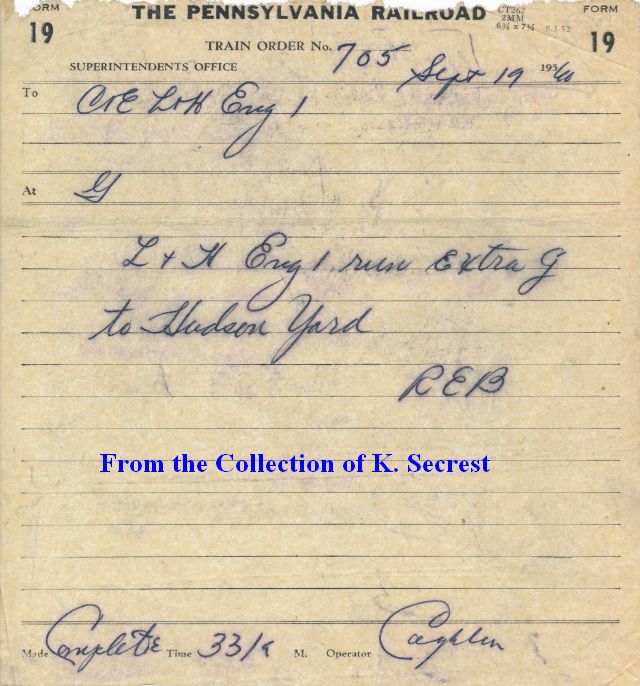 FORM THE PENNSYLVANIA RAILROAD CT262 FORM
19 2MM 19
6¾ x 7¼ 8-5-52
TRAIN ORDER No. 705
SUPERINTENDENTS OFFICE Sept 19 195
To C&E L&H Eng 1
At G
L & H Eng 1 run extra G
to Hudson Yard
REB
From the Collection of K. Secrest
Made Complete Time 331 M. Operator